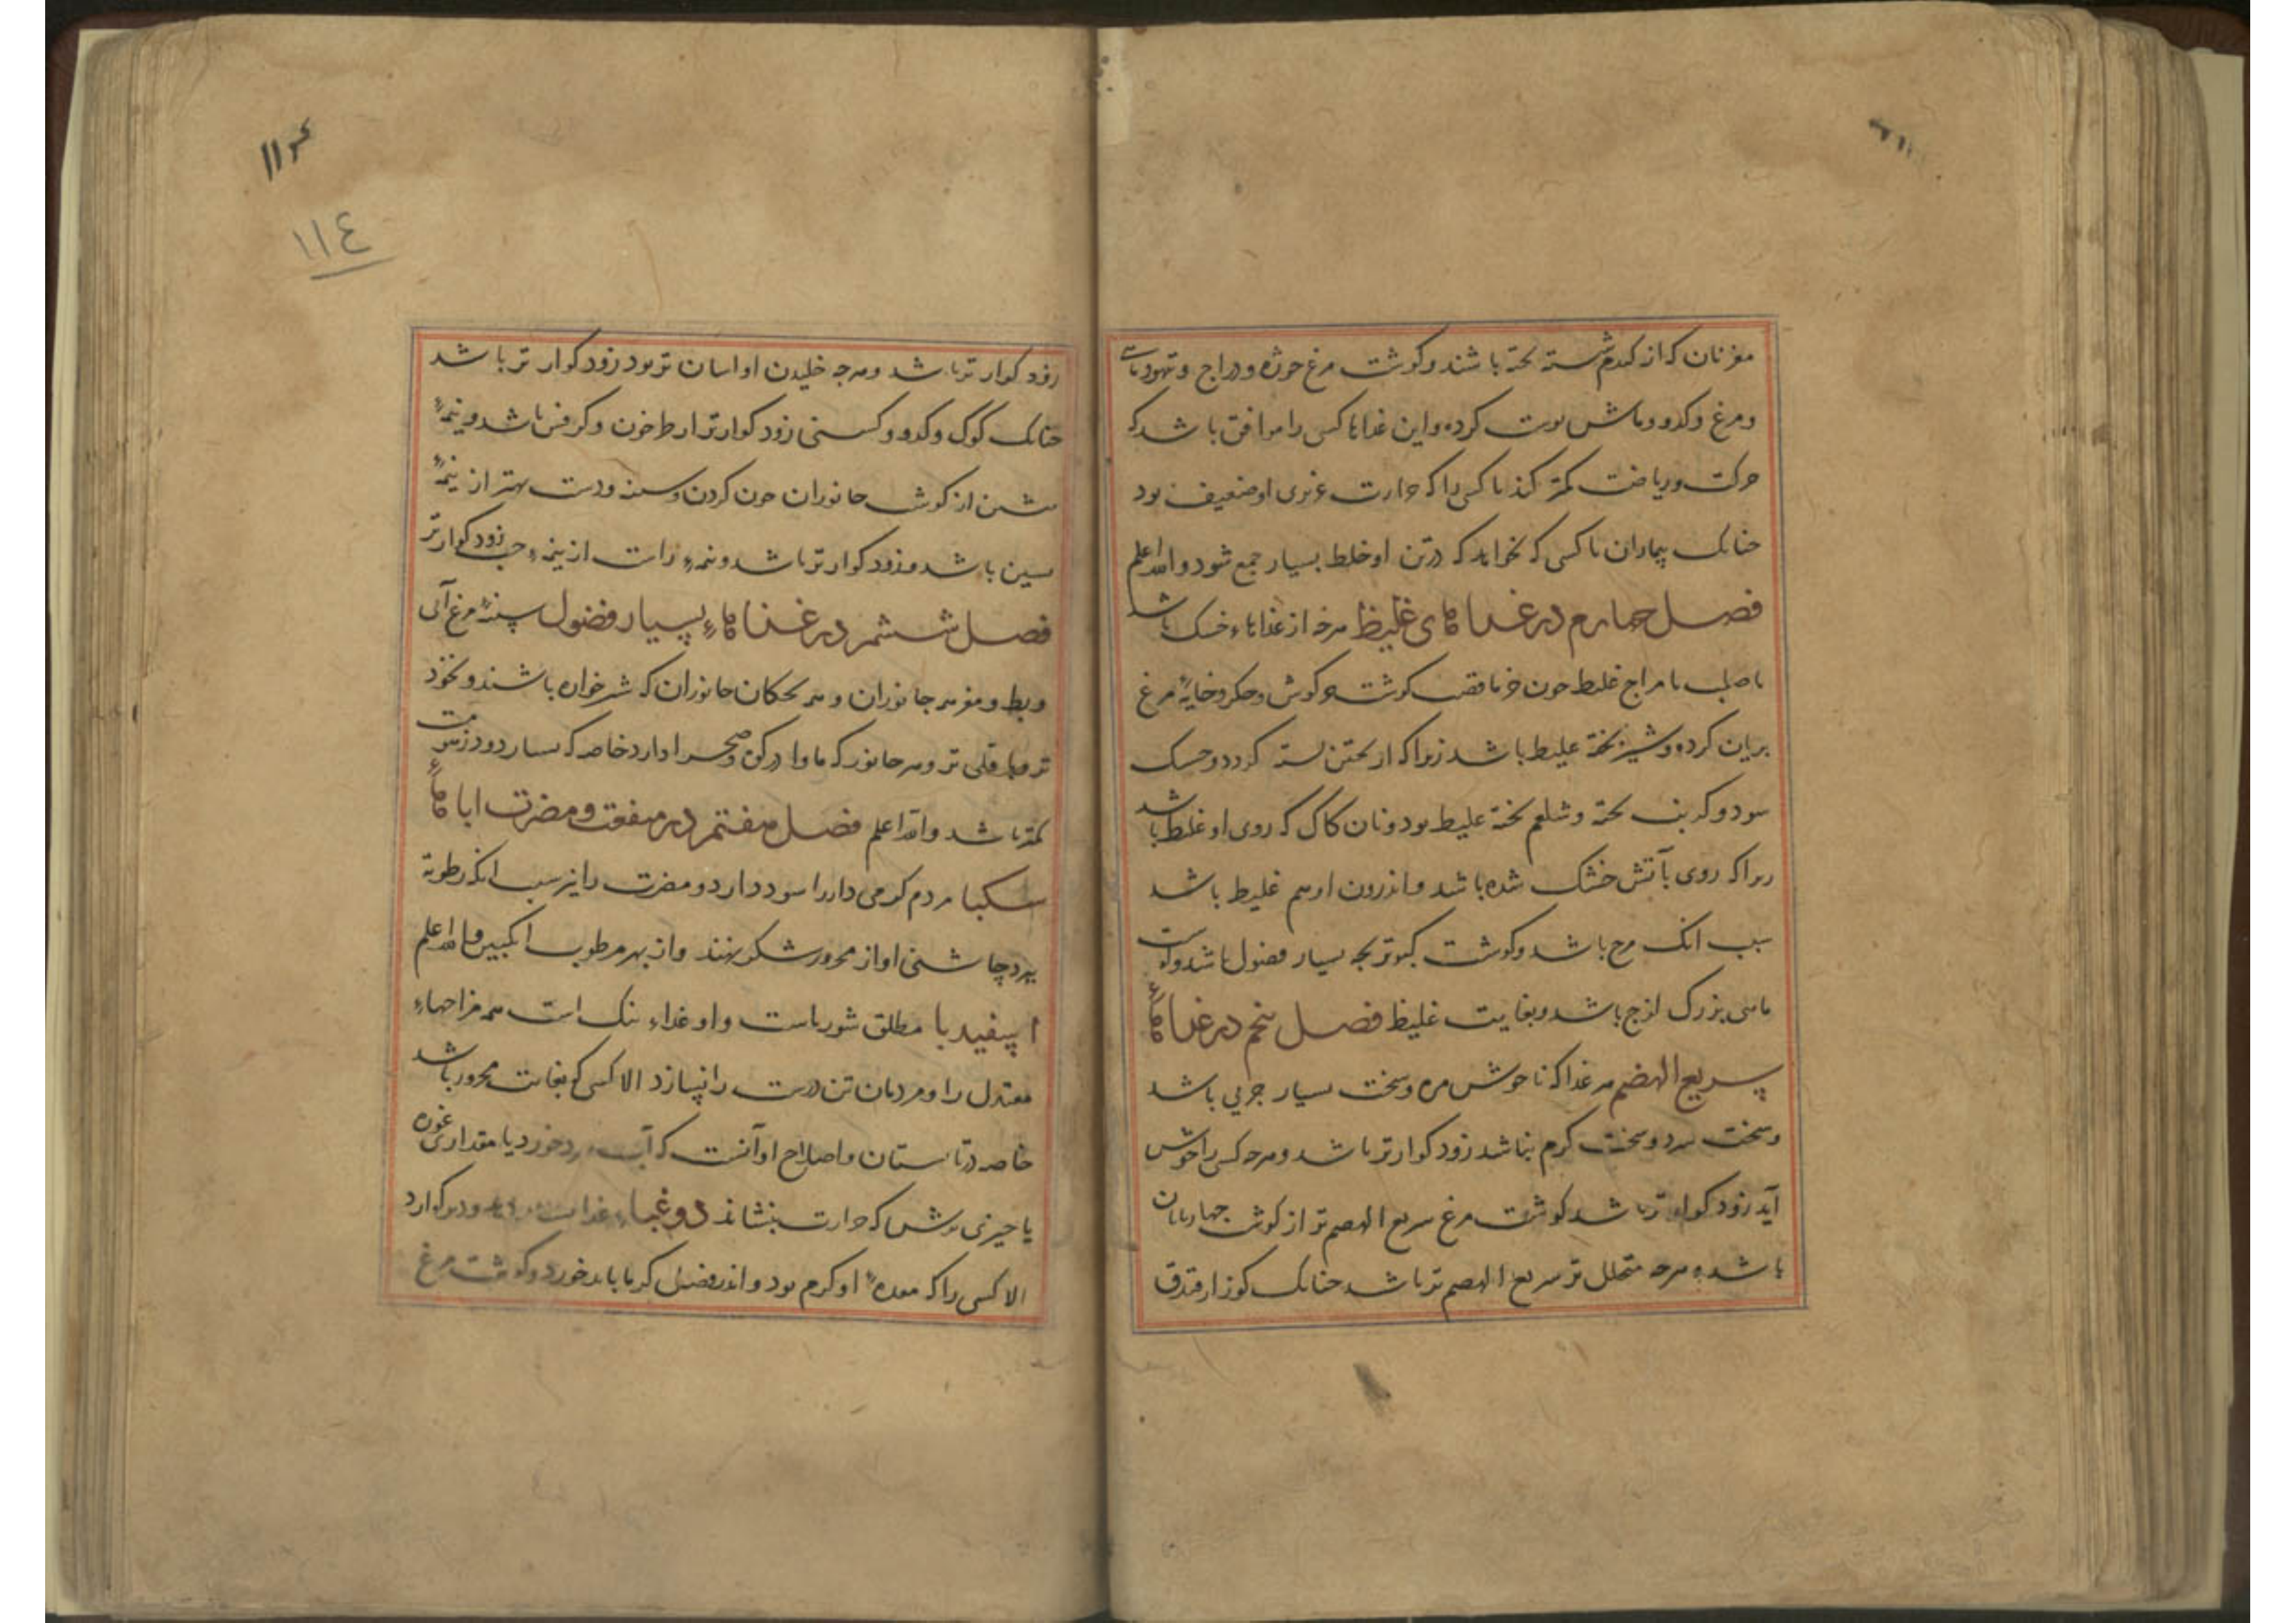 مغز نان که از کندم شسته بخته باشند و کوشت مرغ جوژه و دراج و تیهو
و مرغ و کدو و ماش بوست کرده و این غذاها کسی را موافق باشد که
حرکت و ریاضت کمتر کند یا کسی را که حرارت غریزی او ضعیف بود
جنانک بیماران یا کسی که نخواهد که در تن او خلط بسیار جمع شود والله اعلم
فصل جهارم در غذاهای غلیظ هرجه از غذاهاء خشک باشد
یا صلب یا مزاج غلیظ جون خرما قصب کوشت خرکوش و جکر و خایهٔ مرغ
بریان کرده و شیر بخته غلیظ باشد زیرا که از بختن بسته کردد و خشک
شود و کرنب بخته و شلغم بخته غلیظ بود و نان کاک که روی او غلیظ باشد
زیرا که روی بآتش خشک شده باشد و اندرون او هم غلیظ باشد
سبب انک باشد و کوشت کبوتر بجه بسیار فضول باشد و کوشت
ماهی بزرک لزج باشد و بغایت غلیظ فصل بنجم در غذاهاء
سریع الهضم هر غذا که ناخوش مزه و سخت بسیار جربی باشد
و سخت سرد و سخت کرم نباشد زود کوارتر باشد و هرجه کسی را خوش
آید زود کوارتر باشد کوشت مرغ سریع الهضم تر از کوشت جهاربایان
باشد و هرجه متحلل تر سریع الهضم تر باشد جنانک کوز از فندق
زود کوارتر باشد و هرجه خلیدن او اسان تر بود زود کوارتر باشد
جنانک کوک و کدو و کسنی زود کوارتر از طرخون و کرفس باشد و نیمهٔ
بیشین از کوشت جانوران جون کردن و سینه و دست بهتر از نیمهٔ
بسین باشد و زود کوارتر باشد و نیمهء راست از نیمهء جب زود کوارتر
فصل ششم در غذاهاء بسیار فضول سینهٔ مرغ آبی
و بط و مغز سر جانوران و همه بجکان جانوران که شیرخواره باشند و نخود
تر و باقلی تر و هر جانور که ماوا در کوه و صحرا دارد خاصه که بسیار دود
کمتر باشد والله اعلم فصل هفتم در منفعت و مضرت اباهاء
سکبا مردم کرمی دار را سود دارد و مضرت را نیز سبب انکه رطوبة
ببرد جاشنی او از محرور شکر نهند و از بهر مرطوب انکبین والله اعلم
اسپفیدبا مطلق شورباست و او غذاء نیک است همه مزاجهاء
معتدل را و مردمان تن درست را نیسازد الا کسی که بغایت محرور باشد
خاصه در تابستان و اصلاح او آنست که آب سرد خورد یا مقداری غوره
یا جیزی ترش که حرارت بنشاند دوغباء و دیر کوارد
الا کسی را که معدهٔ او کرم بود و اندر فصل کرما باید خورد و کوشت مرغ
١١٤